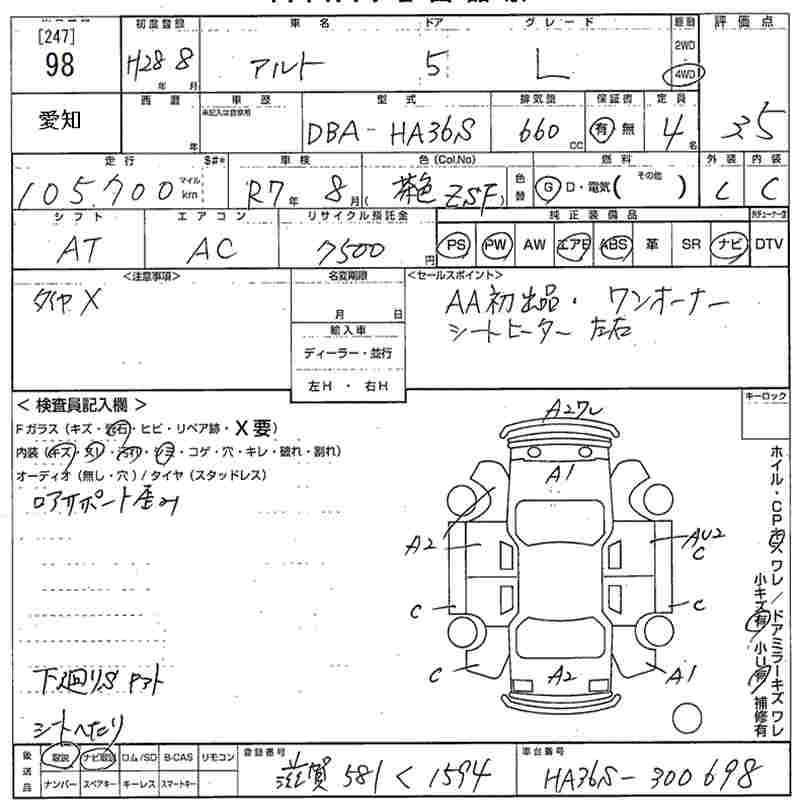 [247]
98
初度登録 車名 ドア グレード 駆動 評価点
H28年 8月 アルト 5 L 2WD 4WD
愛知
西暦 年 車歴 型式 排気量 保証書 定員
未記入は自家用
DBA-HA36S 660cc 有 無 4名 3.5
走行 $#* 車検 色(Col.No) 色替 燃料 その他 外装 内装
105,700 マイル km R7年 8月 (茶色 ZSF) G D・電気( ) C C
シフト エアコン リサイクル預託金 純正装備品
AT AC 7500円 PS PW AW エアB ABS 革 SR ナビ DTV
<注意事項> 名変期限 <セールスポイント>
タイヤX 月 日 AA初出品・ワンオーナー
シートヒーター左右
輸入車
ディーラー・並行
左H・右H
<検査員記入欄> キーロック
Fガラス(キズ・飛石・ヒビ・リペア跡・X要)
オーディオ(無し・穴)/タイヤ(スタッドレス)
ロアサポート歪み
A2
A1
A2
C
C
AU2
C
C
A2
A1
下廻りS
シートへたり
後送品 取説 ナビ取説 ロム/SD B-CAS リモコン
ナンバー スペアキー キーレス スマートキー
登録番号 滋賀 581 く 1594
車台番号 HA36S-300698